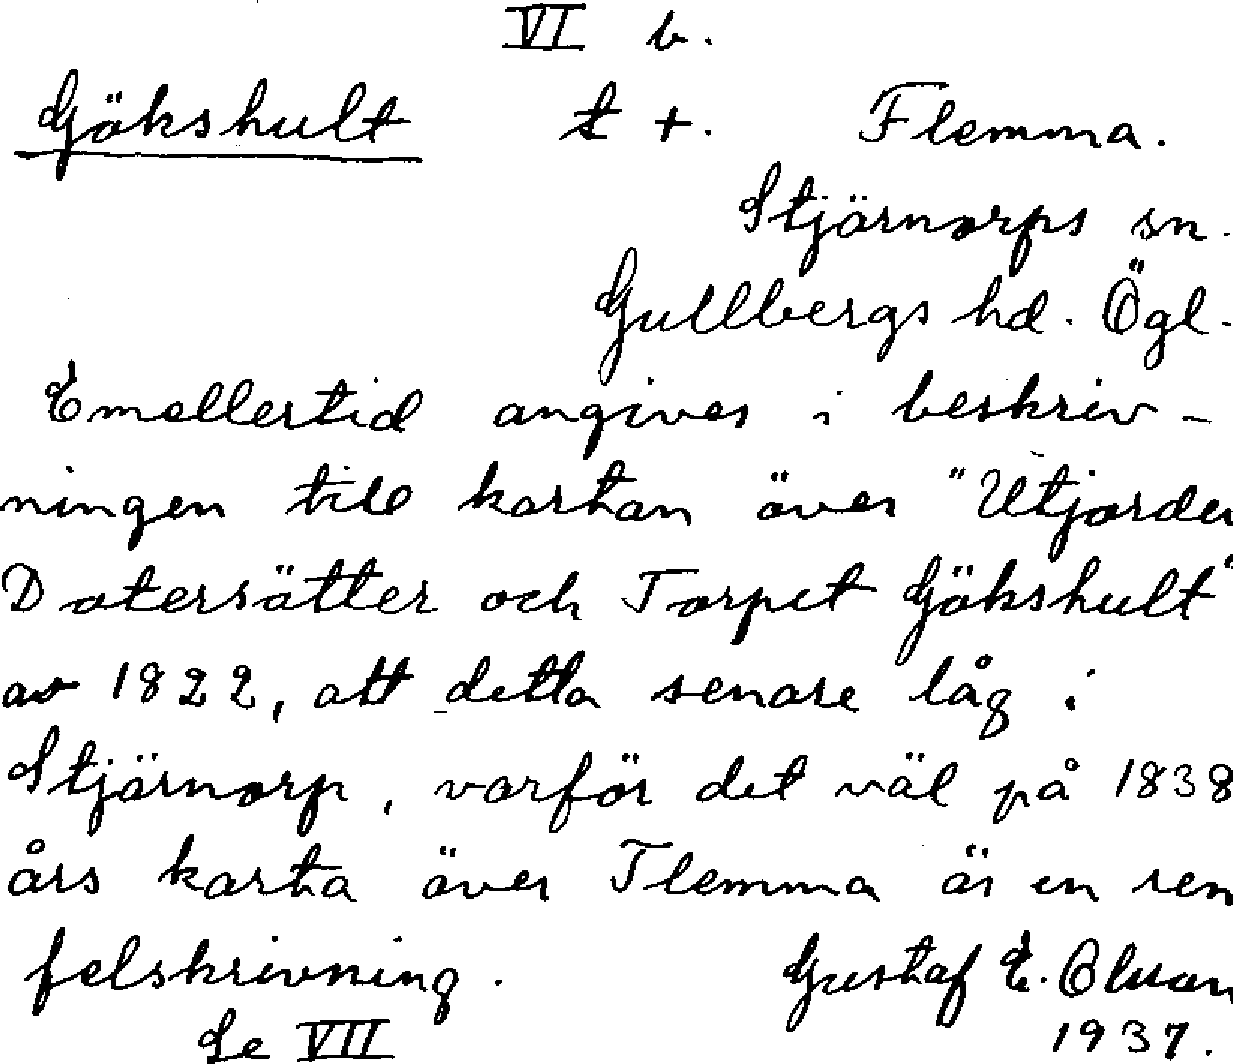 VI b.
Gökshult t +. Flemma.
Stjärnorps sn.
Gullbergs hd. Ögl.
Emellertid angives i beskriv-
ningen till kartan över "Utjorden
Datersätter och Torpet Gökshult"
av 1822, att detta senare låg i
Stjärnorp, varför det väl på 1838
års karta över Flemma är en ren
felskrivning. Gustaf E. Olsson
Se VII 1937.